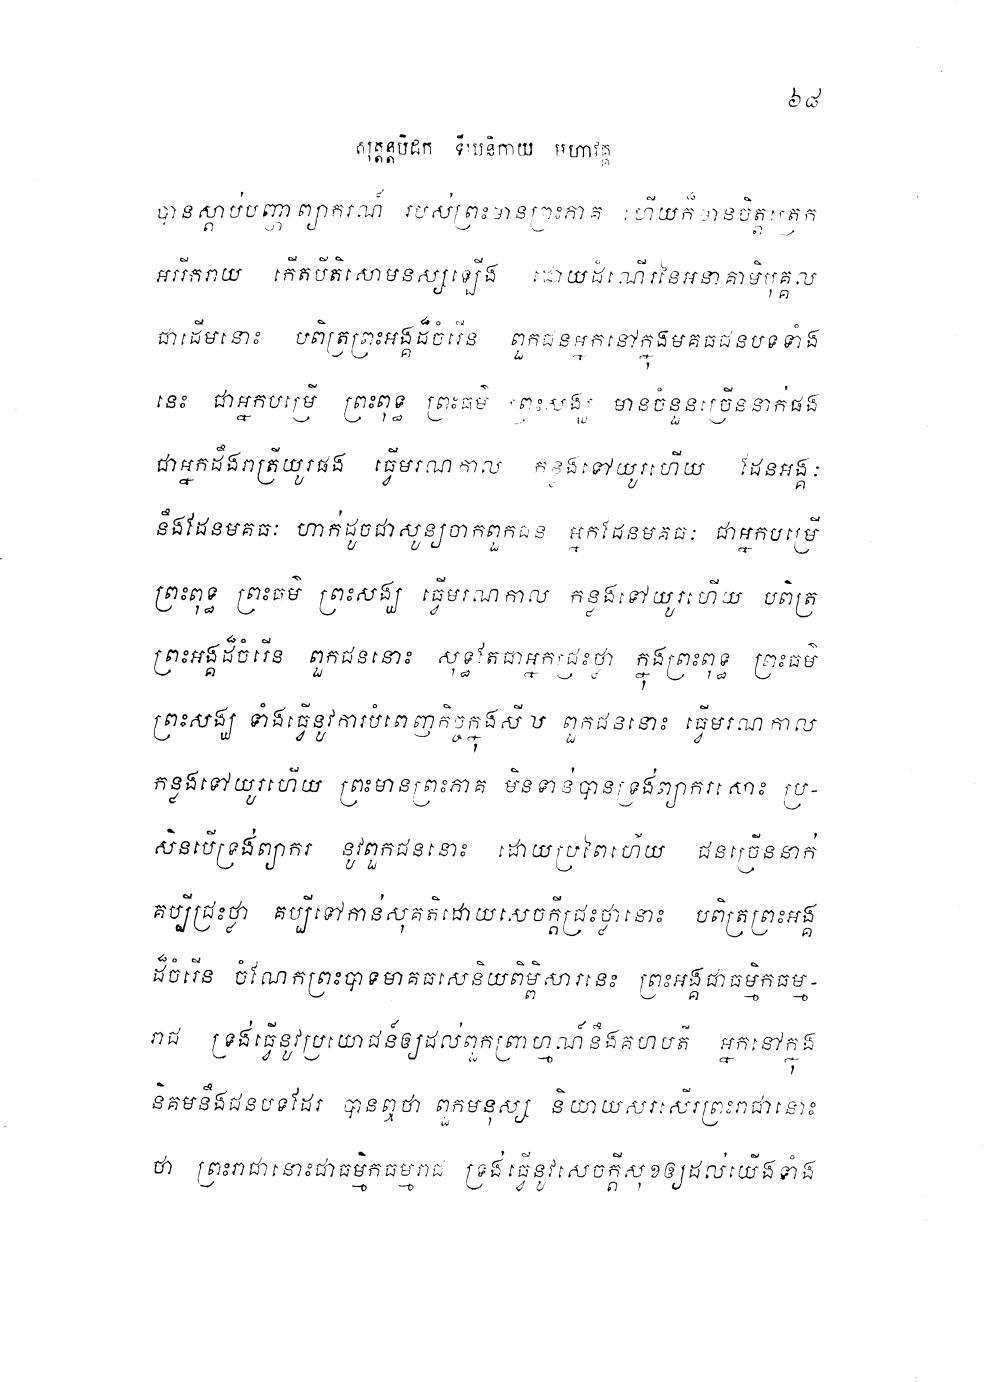 ៦៨
សុត្តន្តបិដក ទីឃនិកាយ មហាវគ្គ
បានស្តាប់បញ្ហាព្យាករណ៍ របស់ព្រះមានព្រះភាគ ហើយក៏មានចិត្តត្រេក
អររីករាយ កើតបីតិសោមនស្សឡើង ដោយដំណើរនៃអនាគាមិបុគ្គល
ជាដើមនោះ បពិត្រព្រះអង្គដ៏ចំរើន ពួកជនអ្នកនៅក្នុងមគធជនបទទាំង
នេះ ជាអ្នកបម្រើ ព្រះពុទ្ធ ព្រះធម៌ ព្រះសង្ឃ មានចំនួនច្រើននាក់ផង
ជាអ្នកដឹងរាត្រីយូរផង ធ្វើមរណកាល កន្លងទៅយូរហើយ ដែនអង្គៈ
នឹងដែនមគធៈ ហាក់ដូចជាសូន្យចាកពួកជន អ្នកដែនមគធៈ ជាអ្នកបម្រើ
ព្រះពុទ្ធ ព្រះធម៌ ព្រះសង្ឃ ធ្វើមរណកាល កន្លងទៅយូរហើយ បពិត្រ
ព្រះអង្គដ៏ចំរើន ពួកជននោះ សុទ្ធតែជាអ្នកជ្រះថ្លា ក្នុងព្រះពុទ្ធ ព្រះធម៌
ព្រះសង្ឃ ទាំងធ្វើនូវការបំពេញកិច្ចក្នុងសីឋ ពួកជននោះ ធ្វើមរណកាល
កន្លងទៅយូរហើយ ព្រះមានព្រះភាគ មិនទាន់បានទ្រង់ព្យាករសោះ ប្រ-
សិនបើទ្រង់ព្យាករ នូវពួកជននោះ ដោយប្រពៃហើយ ជនច្រើននាក់
គប្បីជ្រះថ្លា គប្បីទៅកាន់សុគតិដោយសេចក្តីជ្រះថ្លានោះ បពិត្រព្រះអង្គ
ដ៏ចំរើន ចំណែកព្រះបាទមាគធសេនិយពិម្ពិសារនេះ ព្រះអង្គជាធម្មិកធម្ម-
រាជ ទ្រង់ធ្វើនូវប្រយោជន៍ឲ្យដល់ពួកព្រាហ្មណ៍នឹងគហបតី អ្នកនៅក្នុង
និគមនឹងជនបទដែរ បានឮថា ពួកមនុស្ស និយាយសរសើរព្រះរាជានោះ
ថា ព្រះរាជានោះជាធម្មិកធម្មរាជ ទ្រង់ធ្វើនូវសេចក្តីសុខឲ្យដល់យើងទាំង